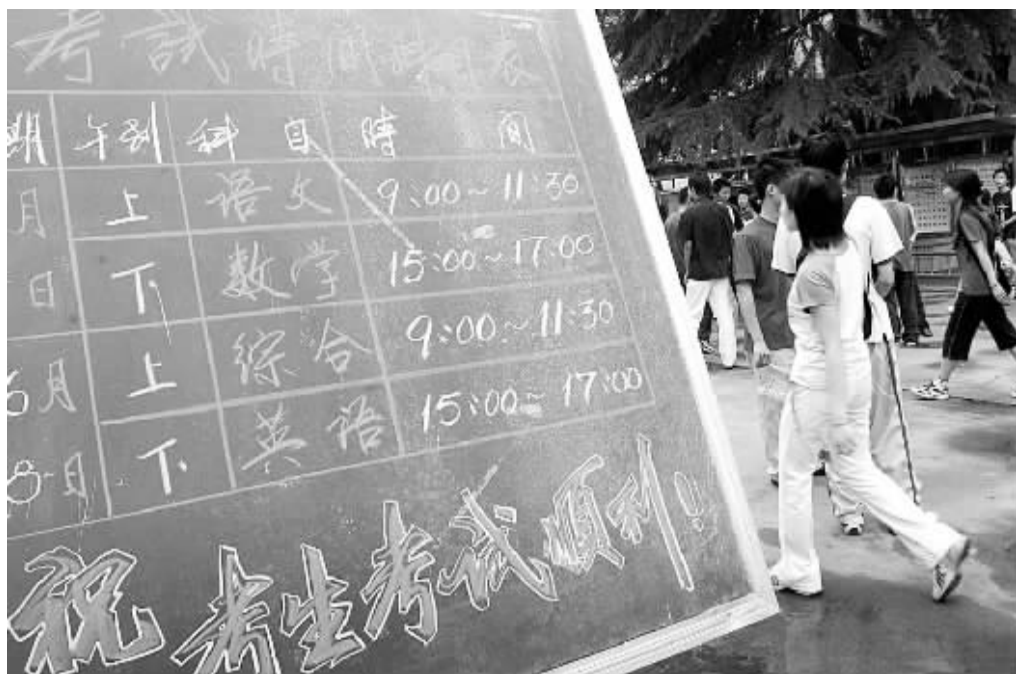 考試時間 表
期 午别 科目 時間
月 上 语文 9:00~11:30
日 下 数学 15:00~17:00
6月 上 综合 9:00~11:30
8日 下 英语 15:00~17:00
祝考生考试順利!